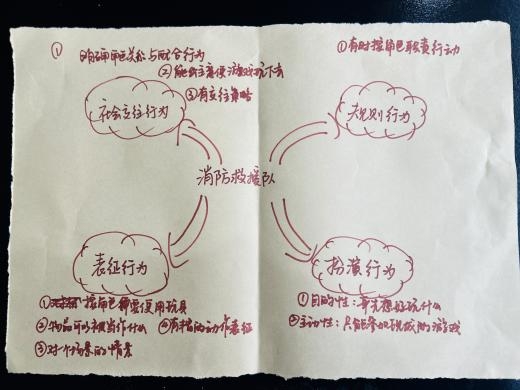 ① 明确角色关系与配合行为
② 能出主意使游戏玩下去
③ 有交往策略
社会交往行为
① 有时按角色职责行动
规则行为
消防救援队
表征行为
① 按角色需要使用玩具
② 物品可以被当作什么
④ 有相应动作表征
③ 对一个场景的情景
扮演行为
① 目的性：事先想好玩什么
② 主动性：只能参加现成的游戏